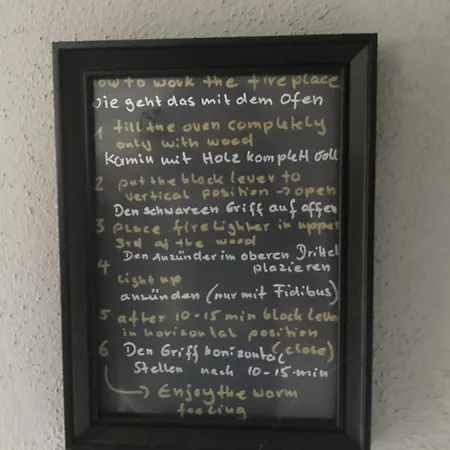 how to work the fireplace
Wie geht das mit dem Ofen
1 fill the oven completely
only with wood
Kamin mit Holz komplett voll
2 put the black lever to
vertical position → open
Den schwarzen Griff auf offen
3 place firelighter in upper
3rd of the wood
Den Anzünder im oberen Drittel
plazieren
4 light up
anzünden (nur mit Fidibus)
5 after 10-15 min black lever
in horizontal position
(close)
6 Den Griff horizontal
stellen nach 10-15 min
→ Enjoy the warm
feeling